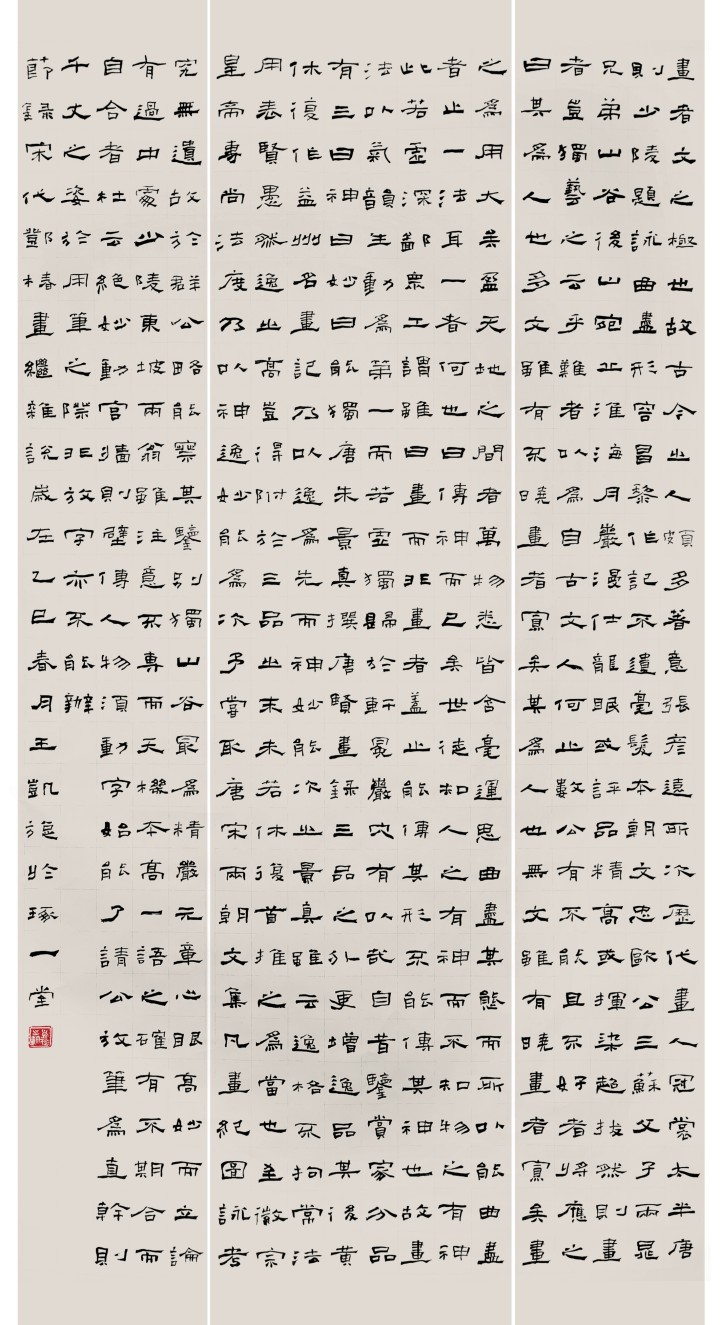 畫者文之極也故古今之人頗多著意張彥遠所次歷代畫人冠裳太半唐
則少陵題詠曲盡形容昌黎作記不遺毫髮本朝文忠歐公三蘇父子兩晁
兄弟山谷後山宛丘淮海月巖漫仕龍眠或評品精高或揮染超拔然則畫
者豈獨藝之云乎難者以為自古文人何止數公有不能且不好者將應之
曰其為人也多文雖有不曉畫者寡矣其為人也無文雖有曉畫者寡矣畫
之為用大矣盈天地之間者萬物悉皆含毫運思曲盡其態而所以能曲盡
者止一法耳一者何也曰傳神而已矣世徒知人之有神而不知物之有神
此若虛深鄙眾工謂雖曰畫而非畫者蓋止能傳其形不能傳其神也故畫
法以氣韻生動為第一而若虛獨歸於軒冕巖穴有以哉自昔鑒賞家分品
有三曰神曰妙曰能獨唐朱景真撰唐賢畫錄三品之外更增逸品其後黃
休復作益州名畫記乃以逸為先而神妙能次之景真雖云逸格不拘常法
用表賢愚然逸之高豈得附於三品之末未若休復首推之為當也至徽宗
皇帝專尚法度乃以神逸妙能為次予嘗取唐宋兩朝文集凡畫紀圖詠考
究無遺故於群公略能察其鑒別獨山谷最為精嚴元章心眼高妙而立論
有過中處少陵東坡兩翁雖注意不專而天機本高一語之確有不期合而
自合者杜云絕妙動宮牆則壁傳人物須動字始能了請公放筆為直幹則
千丈之姿於用筆之際非放字亦不能辦
節錄宋代鄧椿畫繼雜說歲在乙巳春月王凱旋於琢一堂